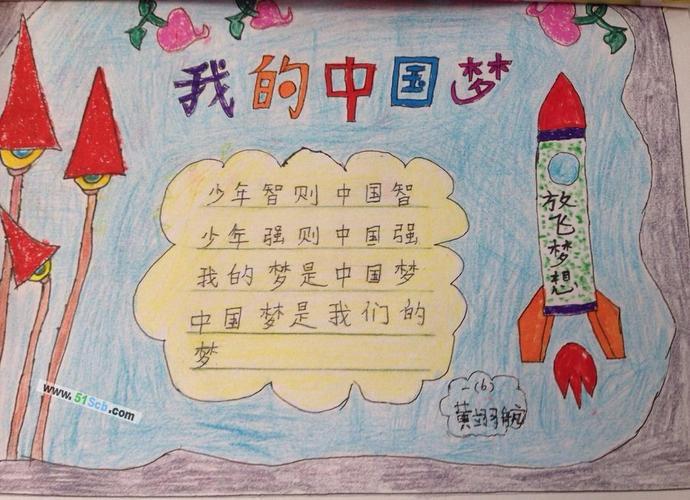 我的中国梦
少年智则中国智
少年强则中国强
我的梦是中国梦
中国梦是我们的
梦
放飞梦想
一(6)
黄羽航
www.51Scb.com